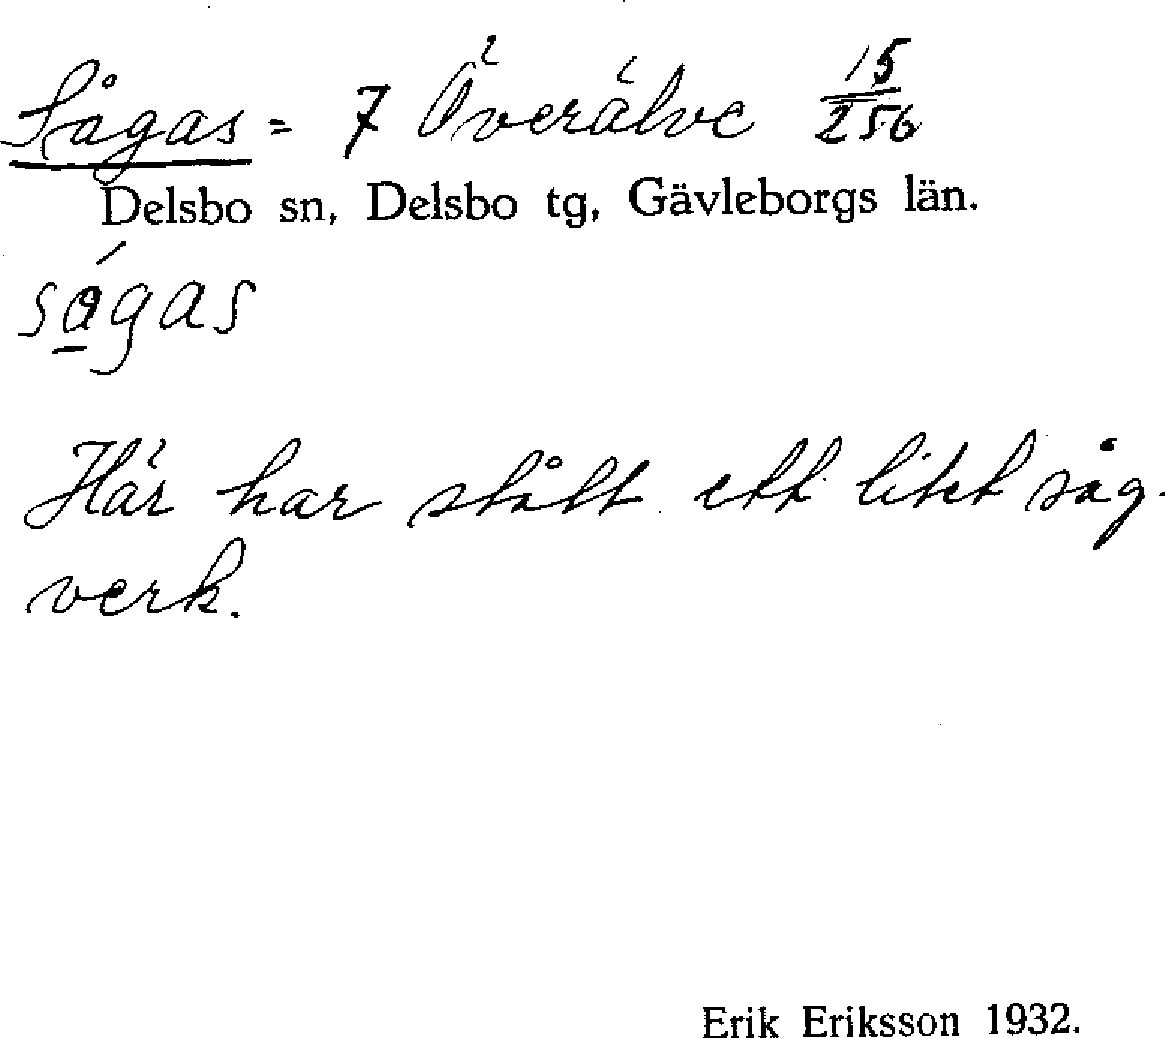 Sågas = 7 Överälve 15/256
Delsbo sn, Delsbo tg, Gävleborgs län.
ságas
Här har stått ett litet såg-
verk.
Erik Eriksson 1932.